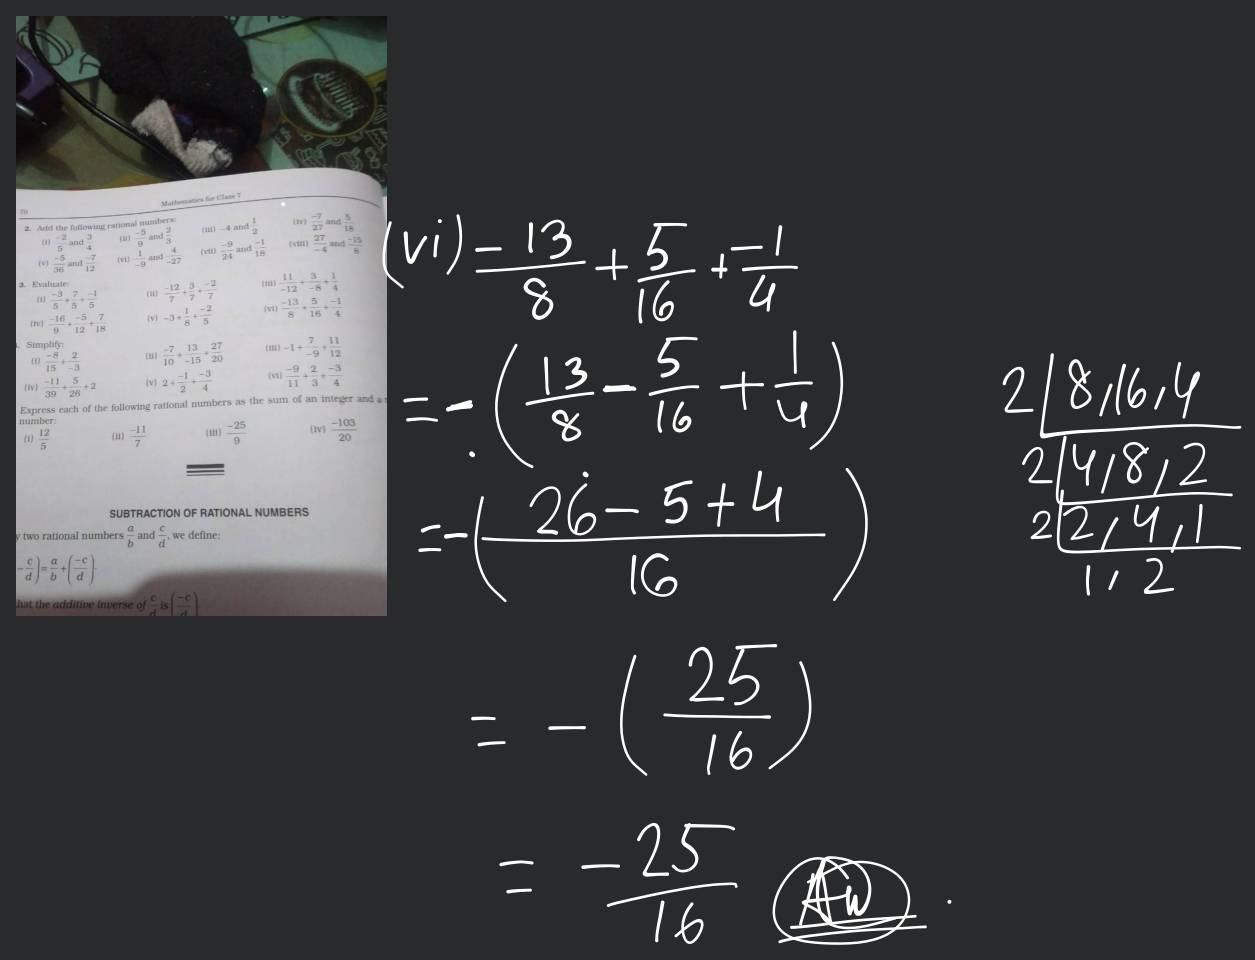 70
Mathematics for Class 7
2. Add the following rational numbers:
(i) -2/5 and 3/4 (ii) -5/9 and 2/3 (iii) -4 and 1/2 (iv) -7/27 and 5/18
(v) -5/36 and -7/12 (vi) 1/-9 and 4/-27 (vii) -9/24 and -1/18 (viii) 27/-4 and -15/8
3. Evaluate:
(i) -3/5 + 7/5 + -1/5 (ii) -12/7 + 3/7 + -2/7 (iii) 11/-12 + 3/-8 + 1/4
(iv) -16/9 + -5/12 + 7/18 (v) -3 + 1/8 + -2/5 (vi) -13/8 + 5/16 + -1/4
. Simplify:
(i) -8/15 + 2/-3 (ii) -7/10 + 13/-15 + 27/20 (iii) -1 + 7/-9 + 11/12
(iv) -11/39 + 5/26 + 2 (v) 2 + -1/2 + -3/4 (vi) -9/11 + 2/3 + -3/4
Express each of the following rational numbers as the sum of an integer and a
number:
(i) 12/5 (ii) -11/7 (iii) -25/9 (iv) -103/20
SUBTRACTION OF RATIONAL NUMBERS
two rational numbers a/b and c/d, we define:
- c/d) = a/b + (-c/d).
hat the additive inverse of c/d is (-c/d)
(vi) -13/8 + 5/16 + -1/4
= -(13/8 - 5/16 + 1/4)
= -(26 - 5 + 4/16)
= -(25/16)
= -25/16
2 8, 16, 4
2 4, 8, 2
2 2, 4, 1
1, 2